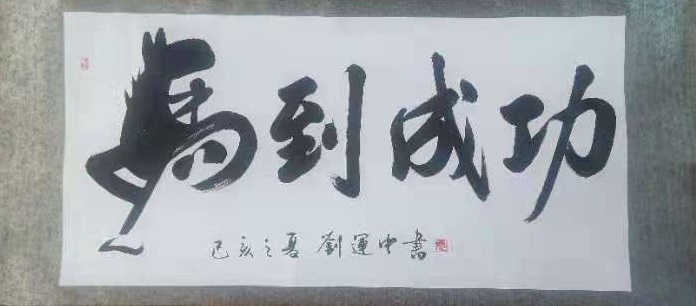 馬到成功
己亥之夏 劉運中書